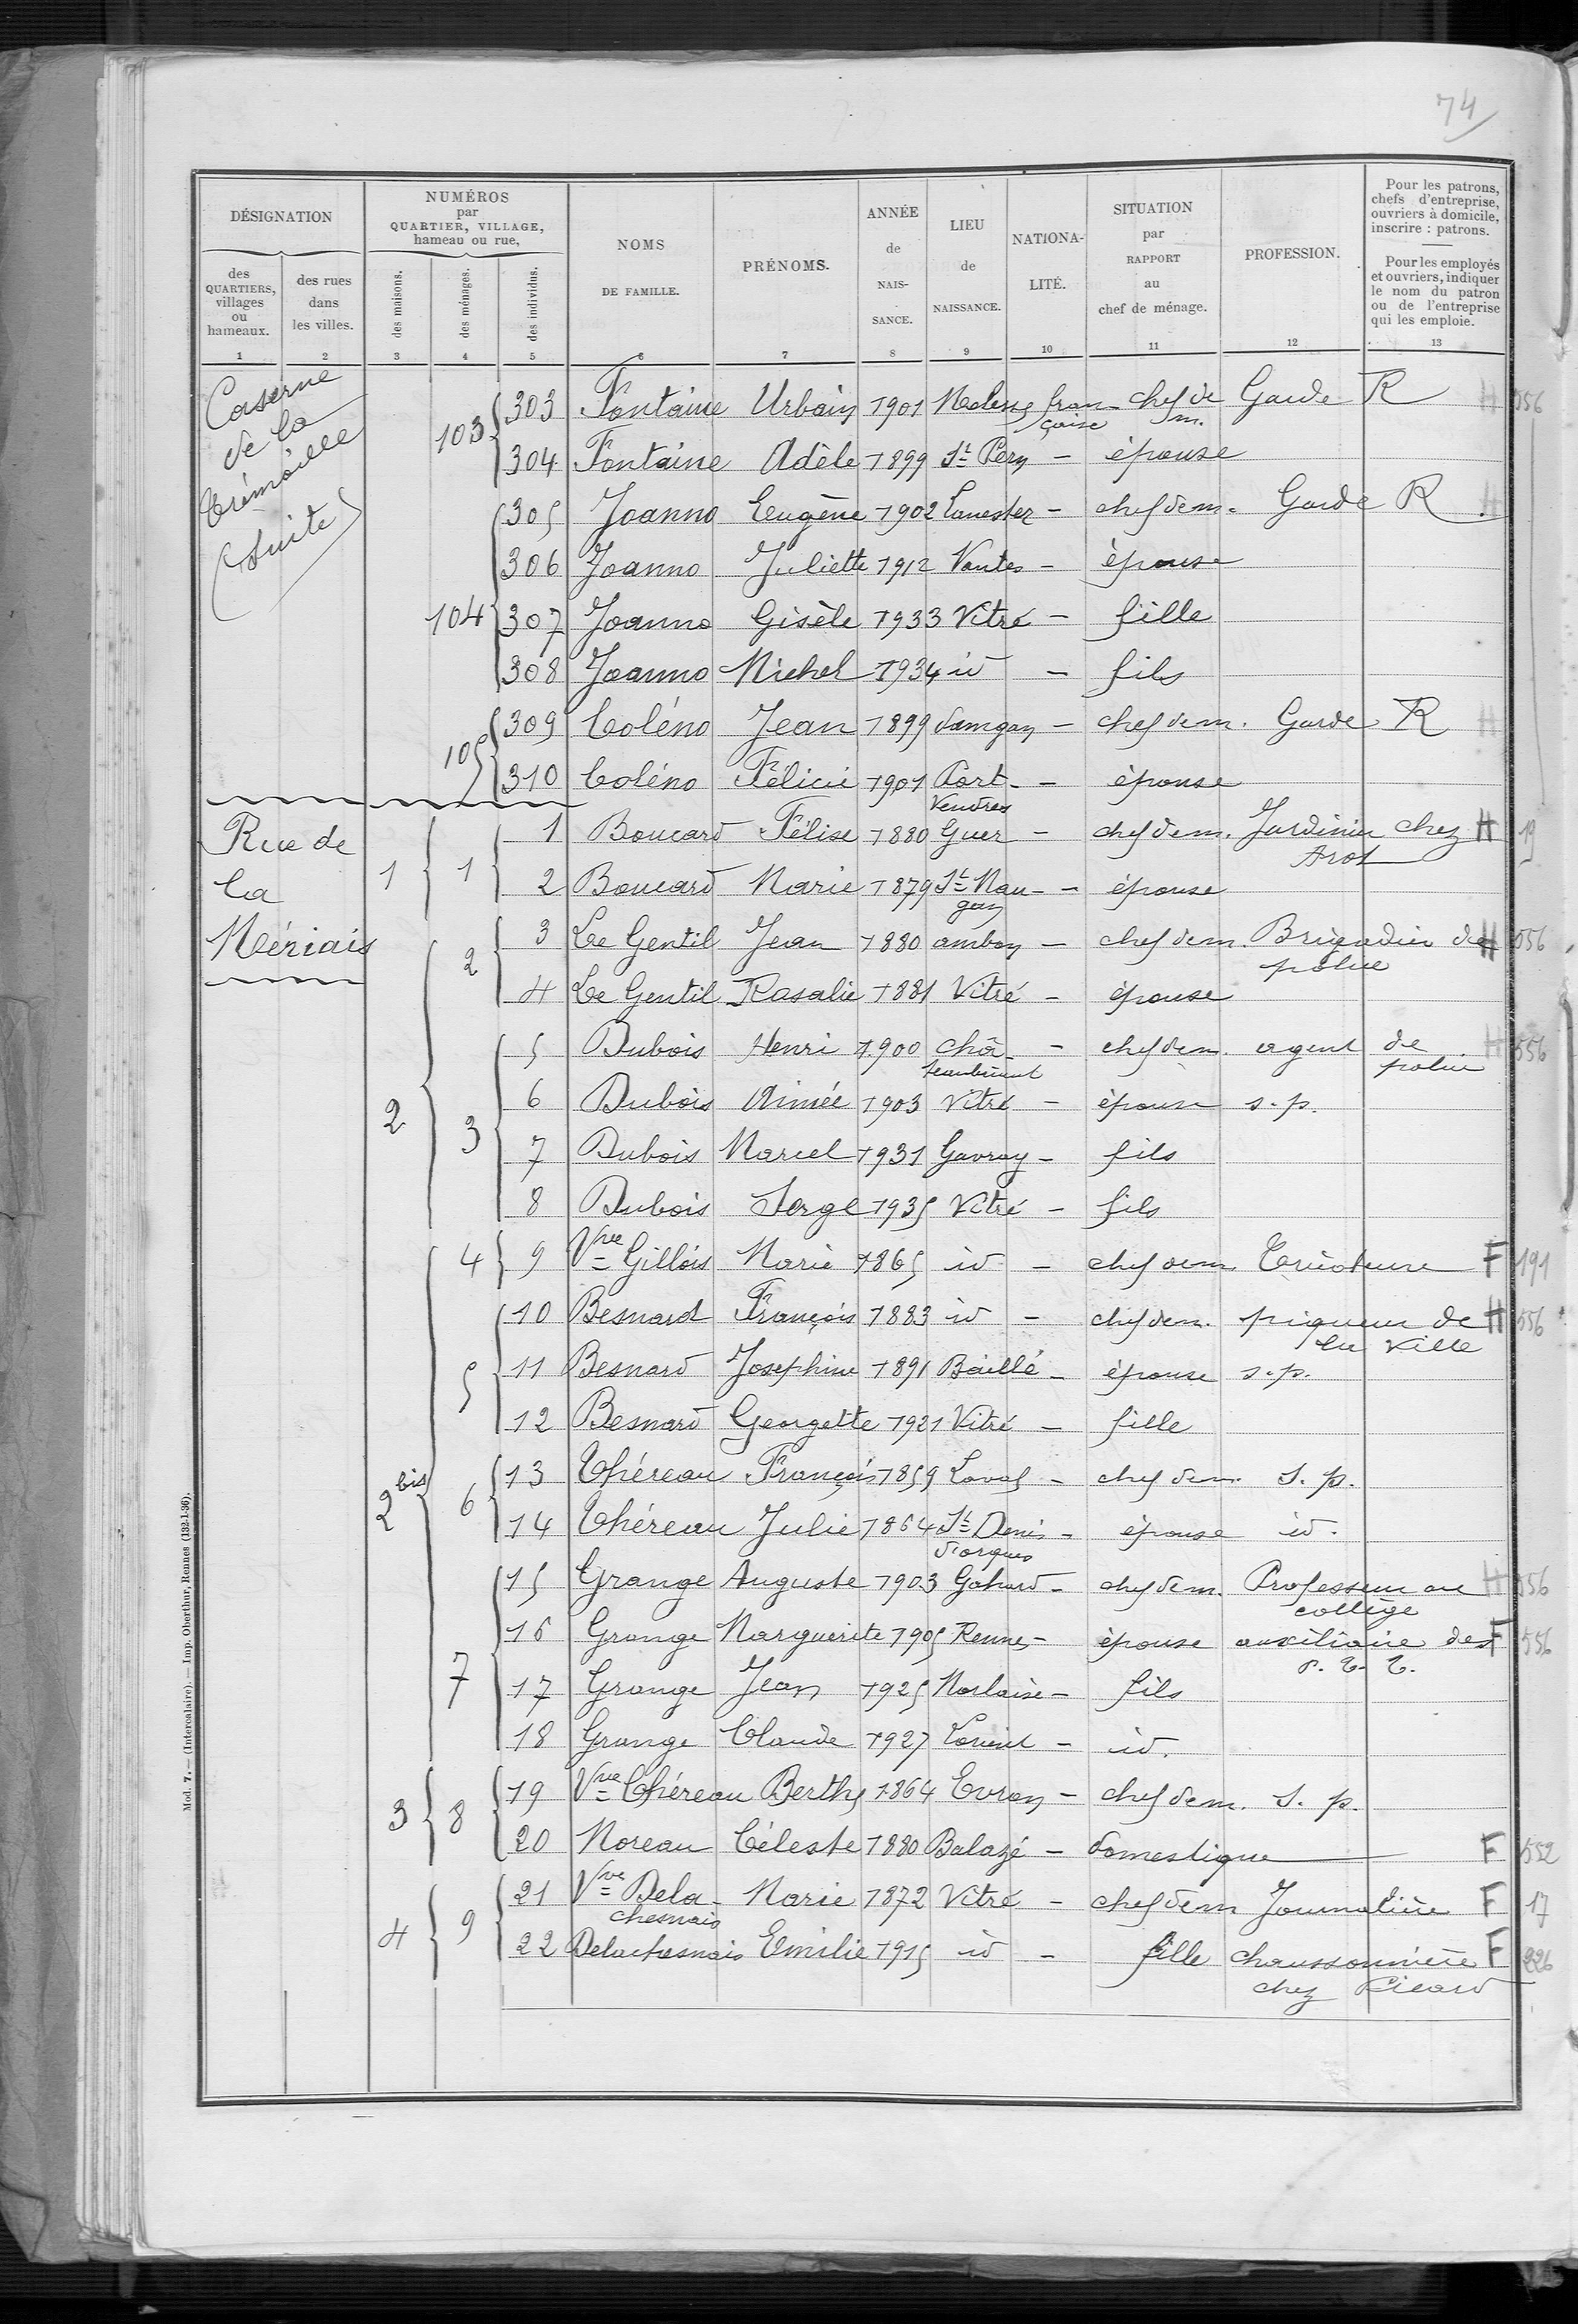 74
DÉSIGNATION
des QUARTIERS, villages ou hameaux.
des rues dans les villes.
NUMÉROS par QUARTIER, VILLAGE, hameau ou rue,
des maisons.
des ménages.
des individus.
NOMS DE FAMILLE.
PRÉNOMS.
ANNÉE de NAIS-SANCE.
LIEU de NAISSANCE.
NATIONA-LITÉ.
SITUATION par RAPPORT au chef de ménage.
PROFESSION.
Pour les patrons, chefs d'entreprise, ouvriers à domicile, inscrire : patrons.
Pour les employés et ouvriers, indiquer le nom du patron ou de l'entreprise qui les emploie.
1 2 3 4 5 6 7 8 9 10 11 12 13
Caserne de la Trémoille (suite)
103 303 Fontaine Urbain 1901 française chef de m. Garde R H 556
304 Fontaine Adèle 1899 St Pern - épouse
305 Joanno Eugène 1902 Lanester - chef de m. Garde R H
306 Joanno Juliette 1912 Nantes - épouse
104 307 Joanno Gisèle 1933 Vitré - fille
308 Joanno Michel 1934 id - fils
105 309 Coléno Jean 1899 Damgan - chef de m. Garde R H
310 Coléno Félicie 1901 Port-Vendres - épouse
Rue de la Mériais
1 1 1 Boucard Félise 1880 Guer - chef de m. Jardinier chez Arot H 19
2 Boucard Marie 1879 St Naugan - épouse
2 3 Le Gentil Jean 1880 ambon - chef de m. Brigadier de police H 556
4 Le Gentil Rosalie 1881 Vitré - épouse
2 3 5 Dubois Henri 1900 châteaubriant - chef de m. agent de police H 556
6 Dubois Aimée 1903 Vitré - épouse s.p.
7 Dubois Marcel 1931 Gavray - fils
8 Dubois Serge 1935 Vitré - fils
4 9 Vve Gillois Marie 1865 id - chef de m Tricoteuse F 191
10 Besnard François 1883 id - chef de m. piqueur de la Ville H 556
5 11 Besnard Josephine 1891 Baillé - épouse s.p.
12 Besnard Georgette 1921 Vitré - fille
2 bis 6 13 Théreau François 1859 Laval - chef de m. s.p.
14 Théreau Julie 1864 St Denis d'orques - épouse id.
15 Grange Auguste 1903 Gahard - chef de m. Professeur au collège H 556
16 Grange Marguerite 1905 Rennes - épouse auxiliaire des P.T.T. F 556
7 17 Grange Jean 1925 Morlaix - fils
18 Grange Claude 1927 Lorient - id.
3 8 19 Vve Théreau Berthe 1864 Evron - chef de m. s.p.
20 Moreau Céleste 1880 Balazé - domestique F 552
4 9 21 Vve Delachesnais Marie 1872 Vitré - chef de m Journalière F 17
22 Delachesnais Emilie 1915 id - fille chaussonnière chez Picard F 226
Mod. 7. — (Intercalaire). — Imp. Oberthur, Rennes (132-1-36).